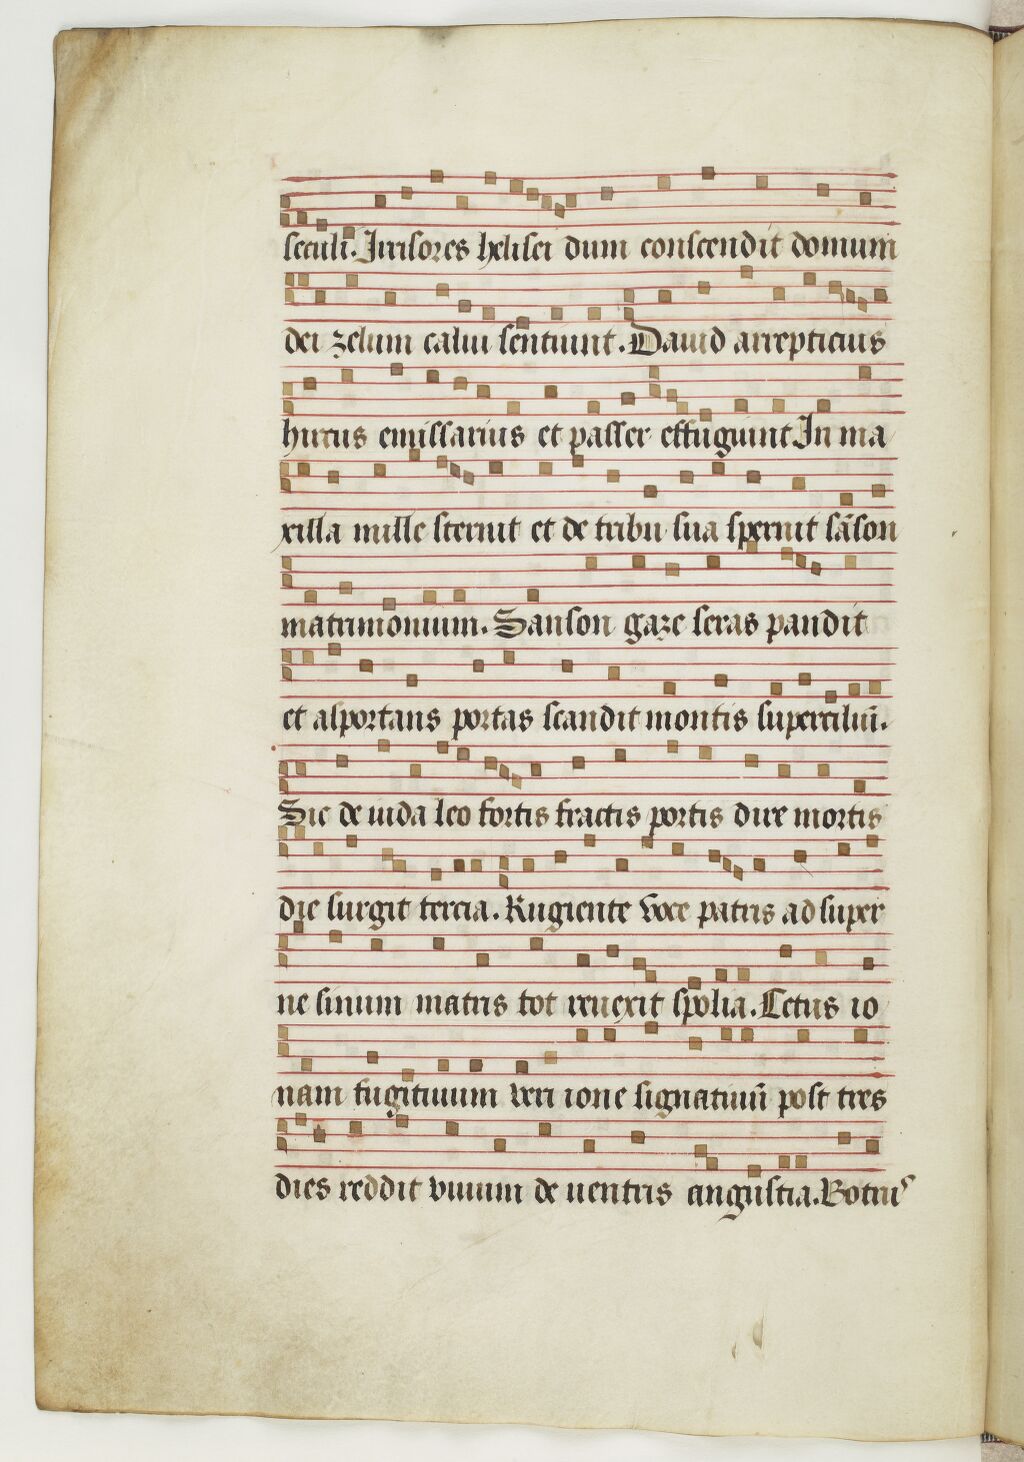 seculi. Irrisores helisei dum conscendit domum
dei zelum calui sentiunt. Dauid arrepticius
hircus emissarius et passer effugiunt In ma
xilla mille sternit et de tribu sua spernit sāson
matrimonium. Sanson gaze seras pandit
et asportans portas scandit montis superciliū.
Sic de iuda leo fortis fractis portis dire mortis
die surgit tercia. Rugiente voce patris ad super
ne sinum matris tot reuexit spolia. Cetus io
nam fugitiuum veri ione signatiuū post tres
dies reddit viuum de uentris angustia. Botruꝰ